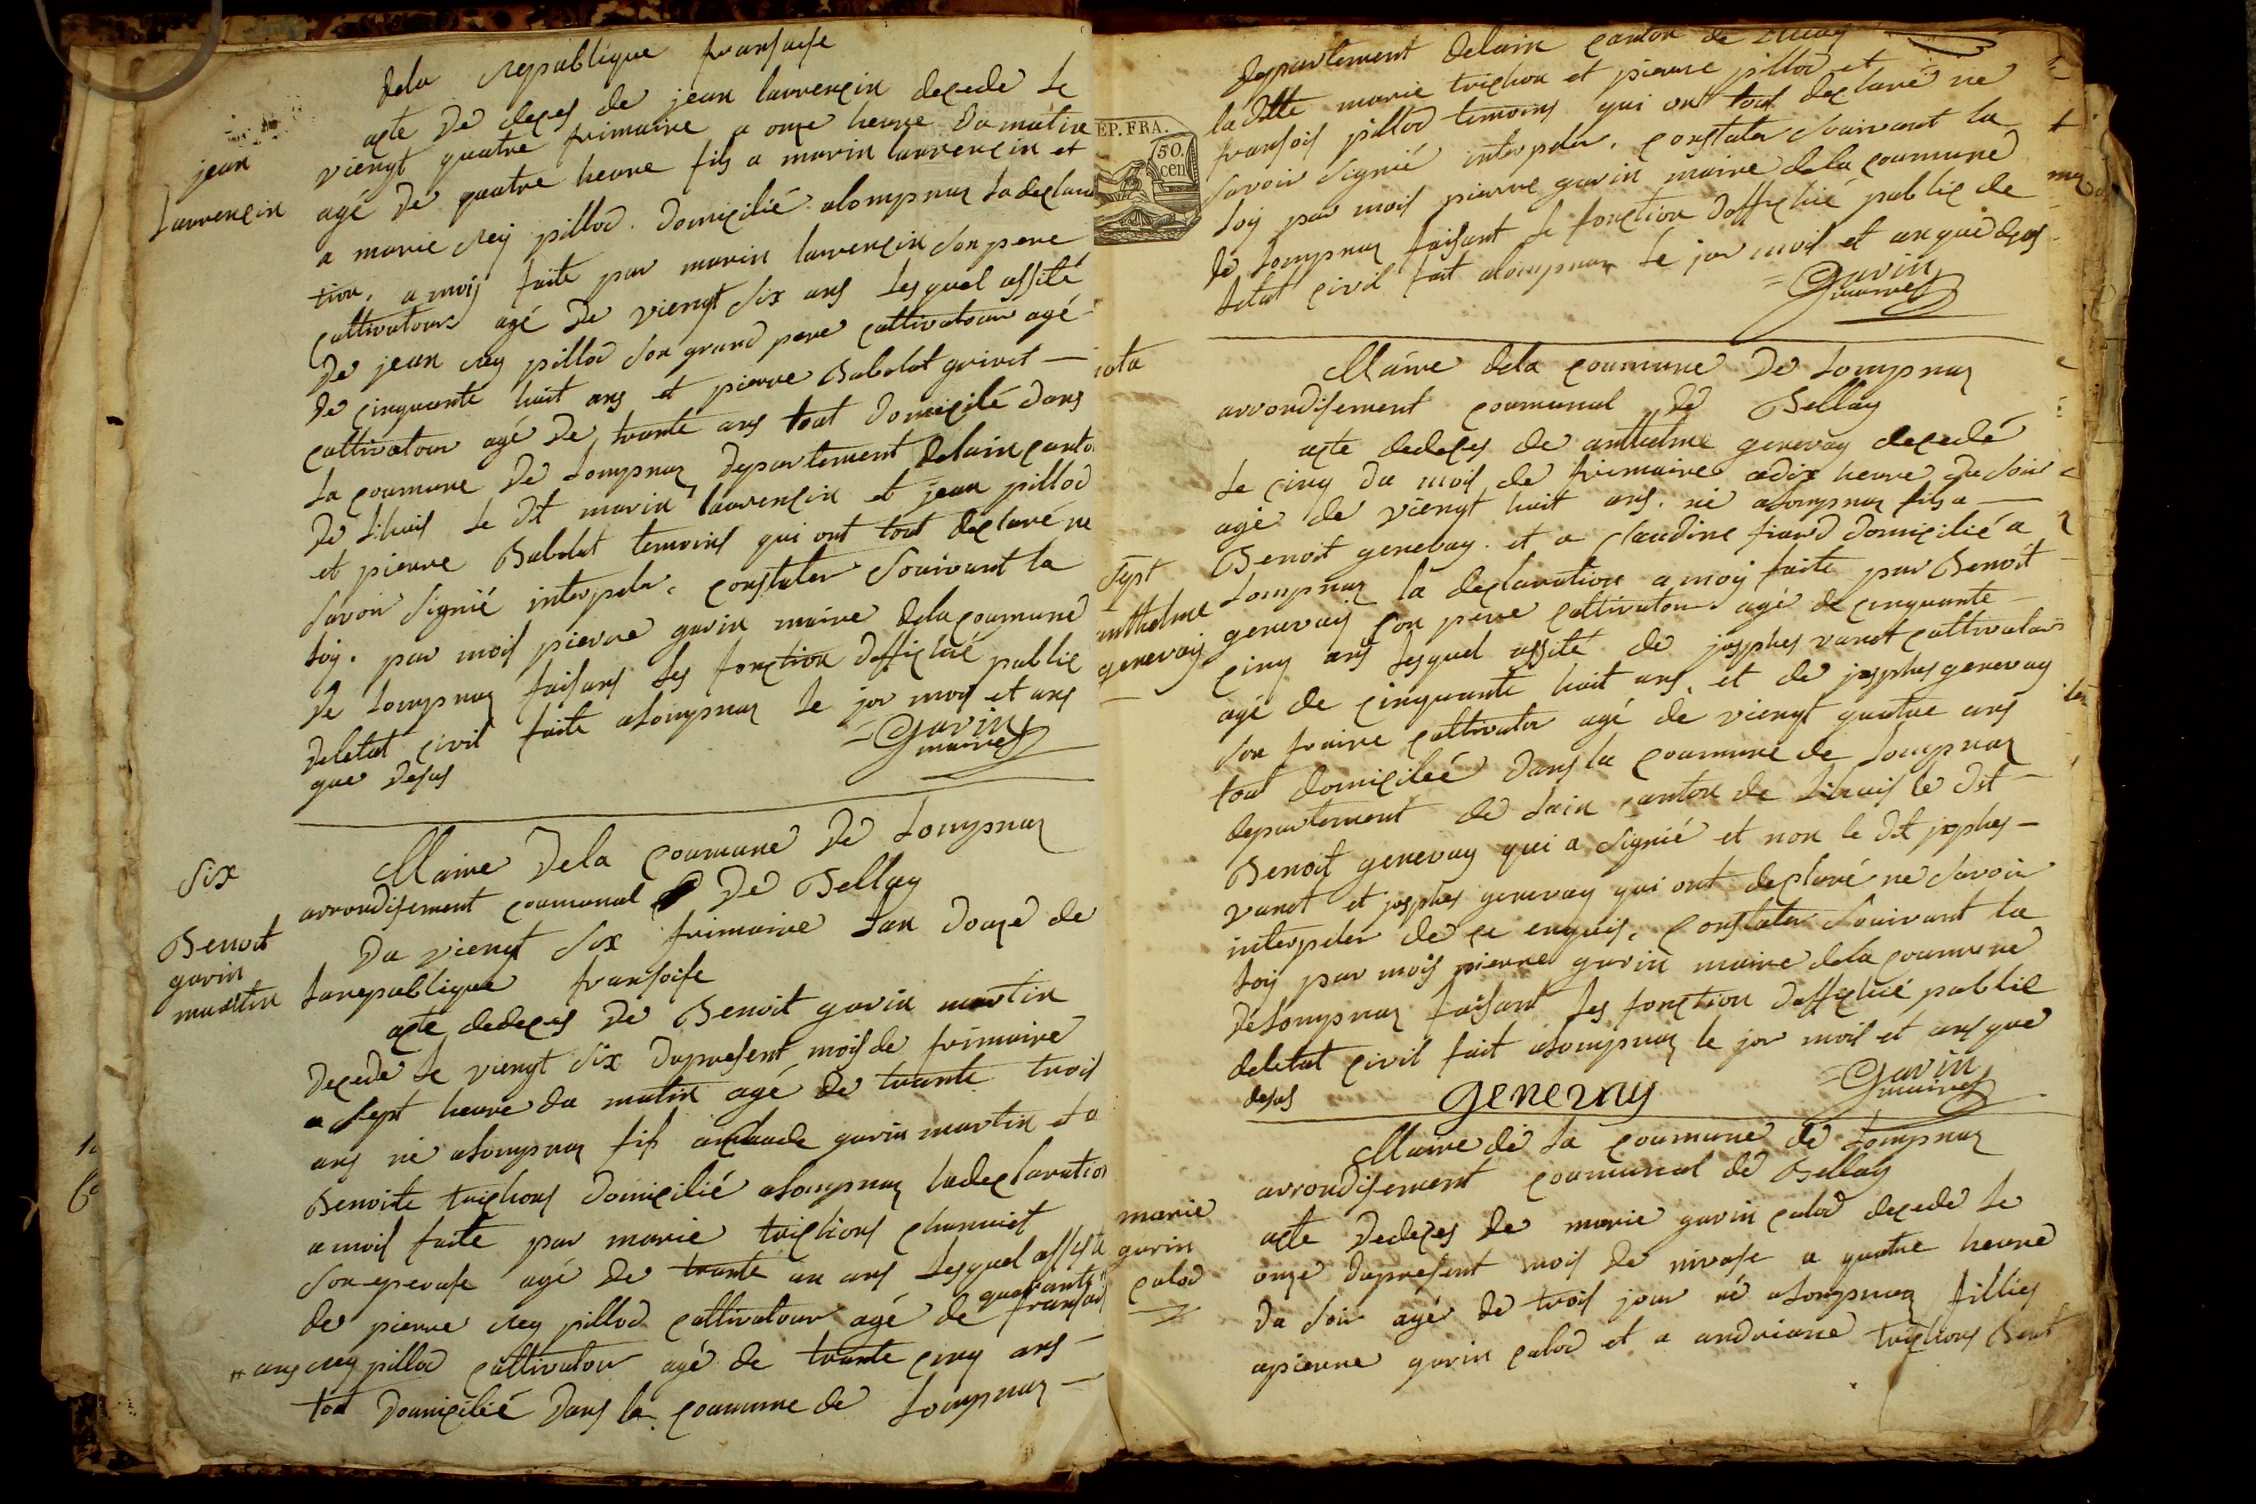 dela republique fransaise
acte de deces de jean laurençin decede le
viengt quatre frimaire a onze heure du matine
agé de quatre heure fils a marin laurençin et
a marie rey pillod. domicilié alompnaz la declara
tion, a moij faite par marin laurençin son pere
cultivatour agé de viengt six ans lesquel assité
de jean rey pillod son grand pere cultivatour agé
de cinquante huit ans et pierre Babolat grivet
cultivatour agé de trante ans tout domicilé dans
la coumune de lompnaz departement delain canto
de lhuis le dit marin laurençin et jean pillod
et pierre Babolat temoins qui ont tout declaré ne
savoir signié interpeler, constater souivant la
loy. par mois pierre gavin maire dela coumune
de lompnaz faisans les fonction dofficié public
deletat civil faite alompnaz le jor mois et ans
que desus
Gavin
maire
jean
laurençin
six
Benoit
gavin
martin
Maire dela coumune de lompnaz
arrondisement coumunal de Bellay
Du viengt six frimaire lan douze de
larepublique fransoise
acte dedeces de Benoit gavin martin
decede le viengt six dupresent mois de frimaire
a sept heure du matin agé de trante trois
ans né alompnaz fils aclaude gavin martin et a
Benoite trichons domicilié alompnaz ladeclaration
amois faite par marie trichons
son epeouse agé de trante un ans lesquel assisté
de pierre rey pillod cultivatour agé de quarante fransois
ans rey pillod cultivatour agé de trante cinq ans
tout doumicilié dans la coumune de lompnaz
EP. FRA.
50.
cen
departement delain canton de lhuis
ladite marie trichon et pierre pillod et
fransois pillod temoins qui ont tout declaré ne
savoir signié interpeler, constater souivant la
loy par mois pierre gavin maire dela coumune
de lompnaz faisant le fonction dofficié public de
letat civil fait alompnaz le jor mois et an que desus
Gavin
maire
Maire dela coumune de lompnaz
arrondisement coumunal de Bellay
acte dedeces de anthelme genevay decedé
le cinq du mois de frimaire adix heure du soir
agé de viengt huit ans. né alompnaz fils a
Benoit genevay. et a claudine fiard domicilié a
lompnaz la declaration a moy faite par Benoit
genevay son pere cultivatour agé de cinquante
cinq ans lesquel assité de josphes varet cultivatour
agé de cinquante huit ans. et de josphes genevay
son fraire cultivator agé de viengt quatre ans
tout domicileé dans la coumune de lompnaz
departement de lain canton de lhuis le dit
Benoit genevay qui a signié et non le dit josphes
varet et josphes genevay qui ont declaré ne savoir
interpeler de ce enquis, constater souivant la
loy par mois pierre gavin maire dela coumune
delompnaz faisant les fonction dofficié public
deletat civil fait alompnaz le jor mois et ans que
desus
genevay
Gavin
maire
sept
anthelme
genevay
Maire de la coumune de lompnaz
arrondisement coumunal de Bellay
acte dedeces de marie gavin calod decede le
onze dupresent mois de nivose a quatre heure
du soir agé de trois jour né alompnaz fillies
apierre gavin calod et a andriane trichons
marie
gavin
calod